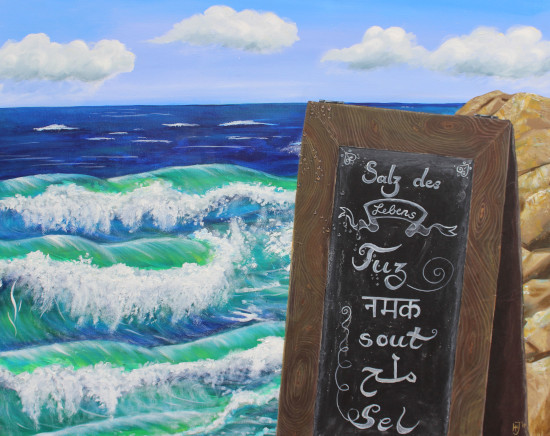 Salz des
Lebens
Tuz
नमक
sout
ملح
Sel